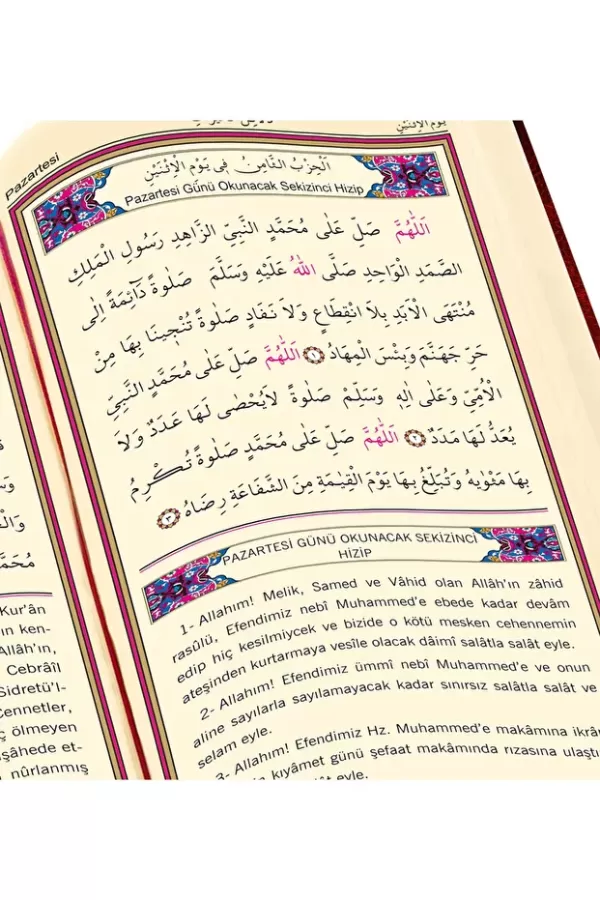 Pazartesi
يَوْمِ الْاِثْنَيْنِ
اَلْحِزْبُ الثَّامِنُ فِي يَوْمِ الْاِثْنَيْنِ
Pazartesi Günü Okunacak Sekizinci Hizip
اَللّٰهُمَّ صَلِّ عَلٰى مُحَمَّدٍ النَّبِيِّ الزَّاهِدِ رَسُولِ الْمَلِكِ
الصَّمَدِ الْوَاحِدِ صَلَّى اللّٰهُ عَلَيْهِ وَسَلَّمَ صَلٰوةً دَٓائِمَةً اِلٰى
مُنْتَهَى الْاَبَدِ بِلَا انْقِطَاعٍ وَلَا نَفَادٍ صَلٰوةً تُنْجِينَا بِهَا مِنْ
حَرِّ جَهَنَّمَ وَبِئْسَ الْمِهَادُ ﴿١﴾ اَللّٰهُمَّ صَلِّ عَلٰى مُحَمَّدٍ النَّبِيِّ
الْاُمِّيِّ وَعَلٰى اٰلِهِ وَسَلِّمْ صَلٰوةً لَا يُحْصٰى لَهَا عَدَدٌ وَلَا
يُعَدُّ لَهَا مَدَدٌ ﴿٢﴾ اَللّٰهُمَّ صَلِّ عَلٰى مُحَمَّدٍ صَلٰوةً تُكْرِمُ
بِهَا مَثْوٰيهُ وَتُبَلِّغُ بِهَا يَوْمَ الْقِيٰمَةِ مِنَ الشَّفَاعَةِ رِضَاهُ ﴿٣﴾
PAZARTESİ GÜNÜ OKUNACAK SEKİZİNCİ
HİZİP
1- Allahım! Melik, Samed ve Vâhid olan Allâh'ın zâhid
rasûlü, Efendimiz nebî Muhammed'e ebede kadar devâm
edip hiç kesilmiycek ve bizide o kötü mesken cehennemin
ateşinden kurtarmaya vesîle olacak dâimî salâtla salât eyle.
2- Allahım! Efendimiz ümmî nebî Muhammed'e ve onun
aline sayılarla sayılamayacak kadar sınırsız salâtla salât ve
selam eyle.
3- Allahım! Efendimiz Hz. Muhammed'e makâmına ikrâm
kıyâmet günü şefaat makâmında rızasına ulaştı
eyle.
Kur'ân
ının ken-
Allâh'ın,
Cebrâîl
Sidretü'l-
Cennetler,
ölmeyen
şâhede et-
nûrlanmış